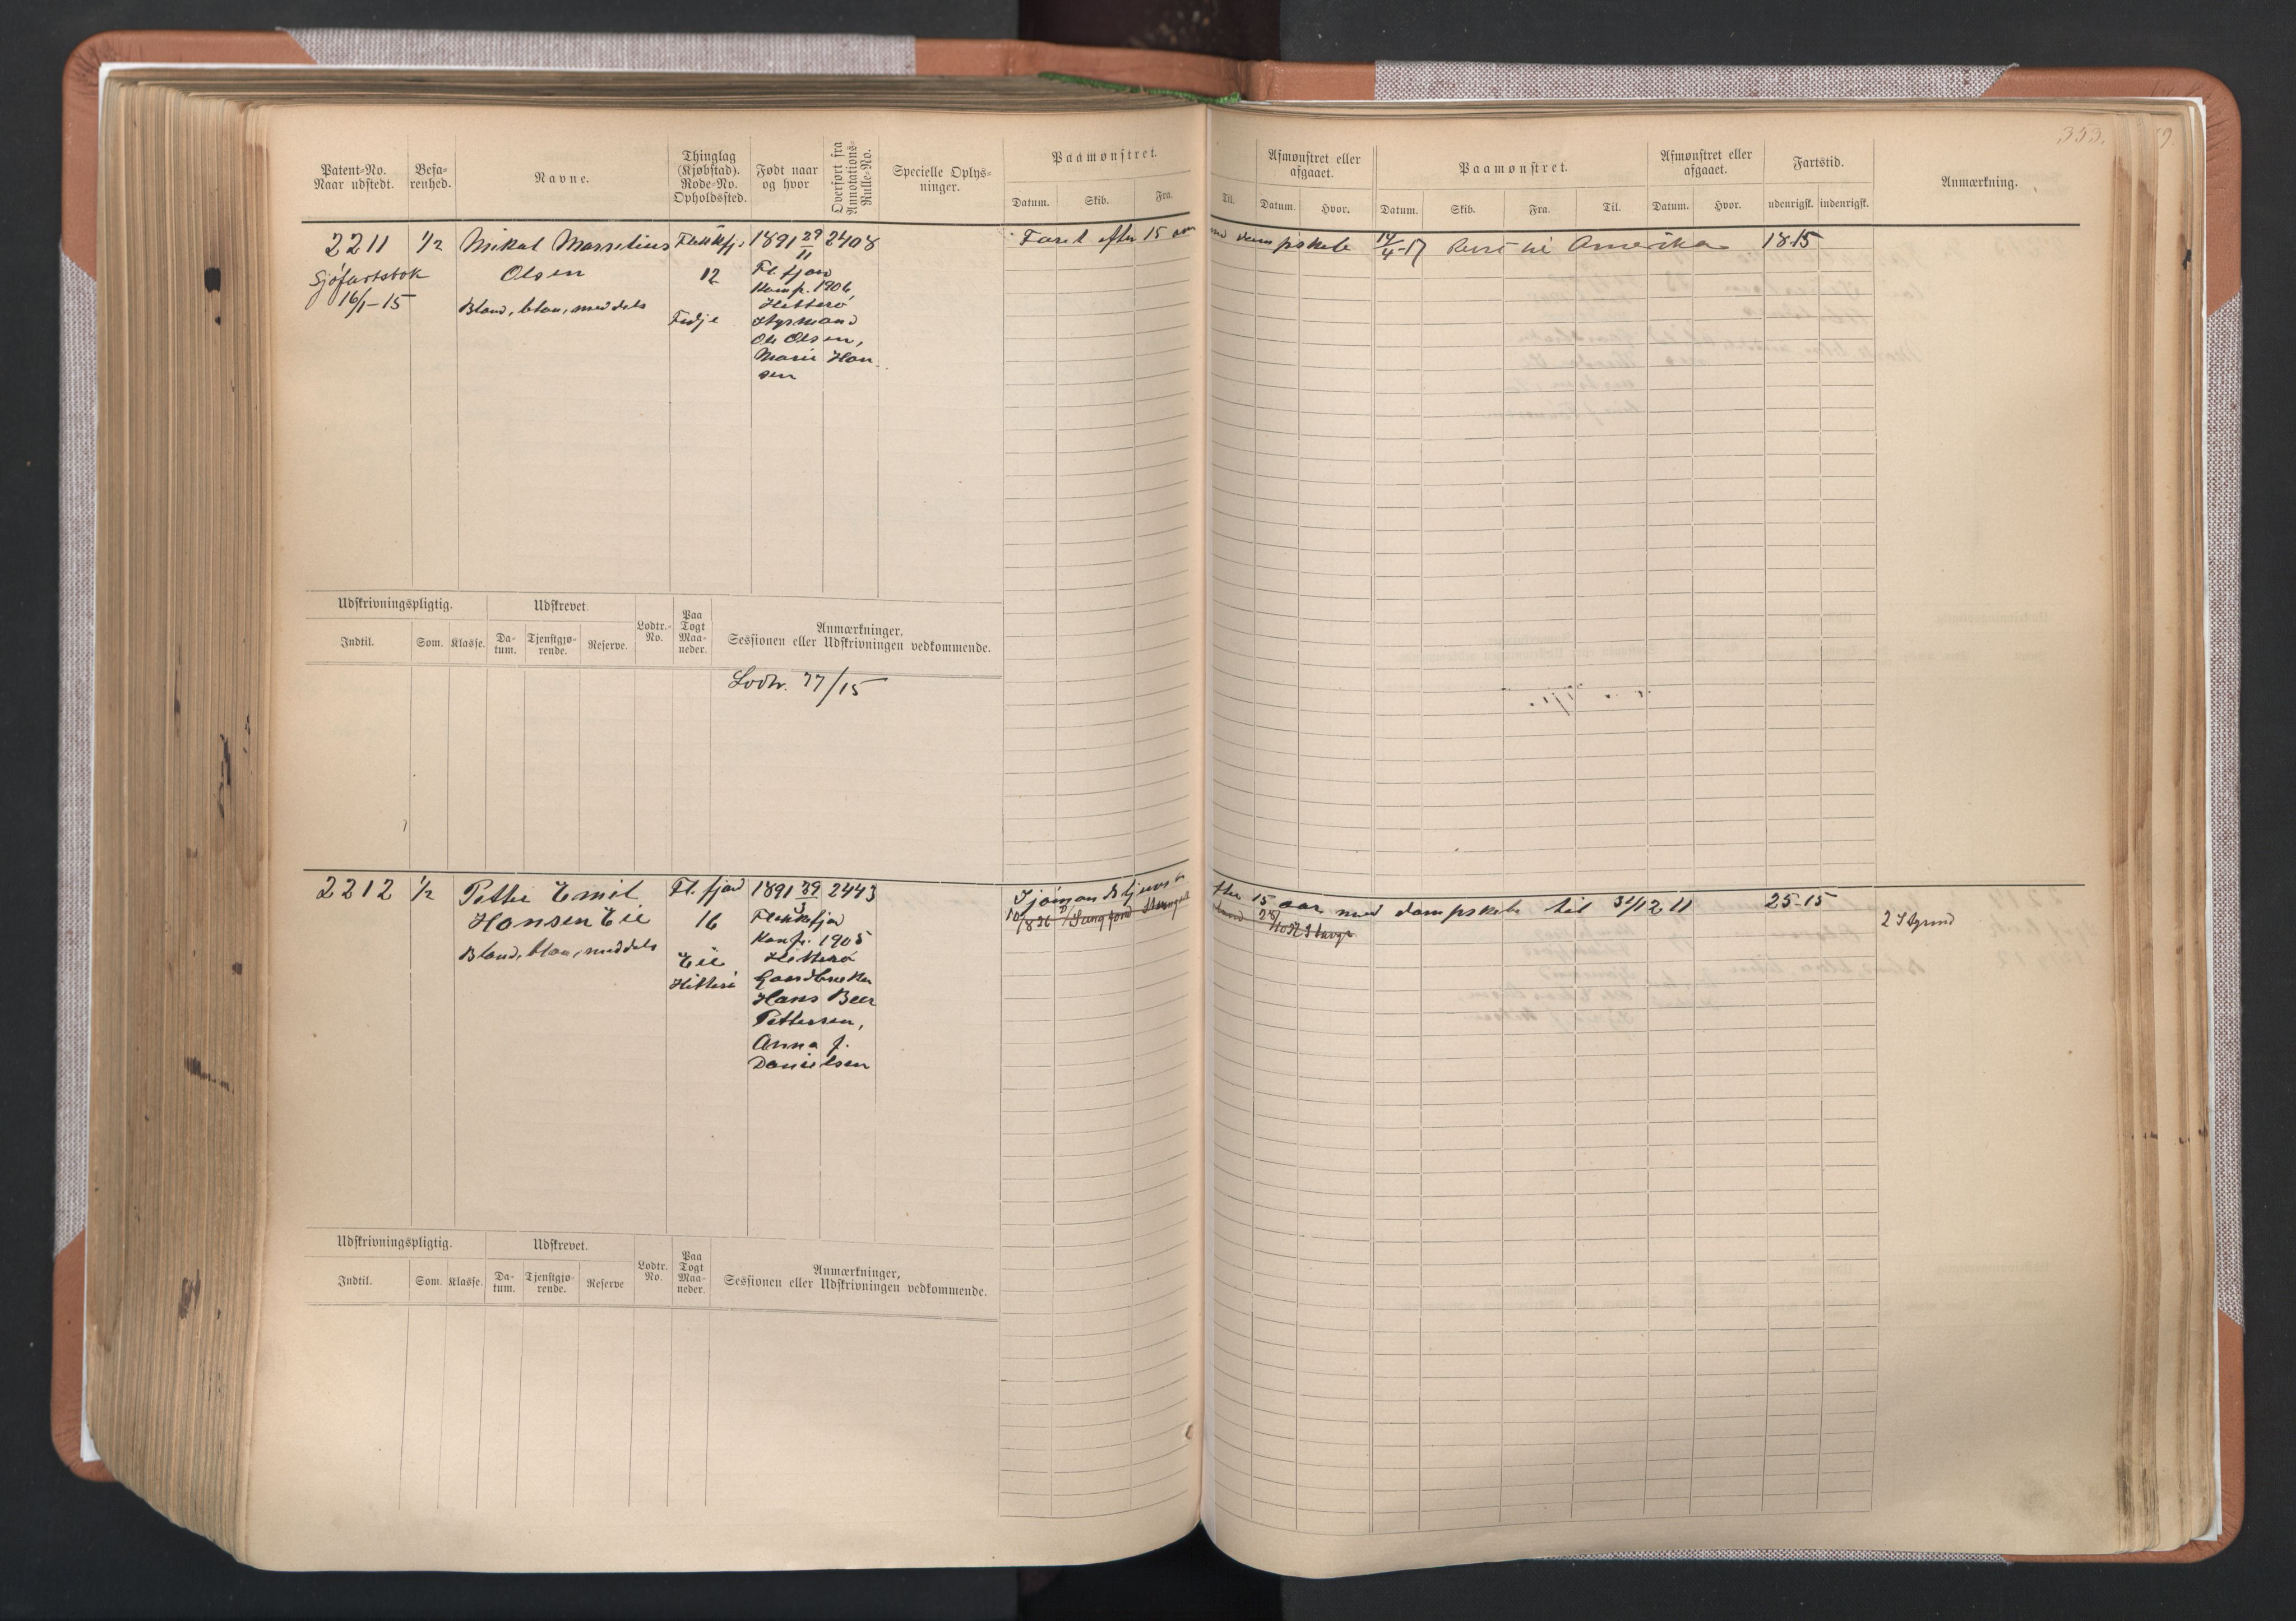 353.
Patent-No. Naar udstedt.
Befa-renhed.
Navne.
Thinglag (Kjøbstad). Rode-No. Opholdssted.
Født naar og hvor
Overført fra Annotations-Rulle-No.
Specielle Oplys-ninger.
Paamønstret.
Datum. Skib. Fra. Til.
Afmønstret eller afgaaet.
Datum. Hvor.
Paamønstret.
Datum. Skib. Fra. Til.
Afmønstret eller afgaaet.
Datum. Hvor.
Fartstid.
udenrigsk. indenrigsk.
Anmærkning.
2211 1/2 Mikal Marselius Flekkefj. 1891 29/11 2408
Faret efter 15 aar med dampskib 14/4-17 Reist til Amerika 18-15
Sjøfartsbok Olsen 12 Fl.fjord
16/1-15 Konf. 1906
Blond, blaa, middels Hitterø
Fedje Styrmand
Ole Olsen,
Marie Han-
sen
Udskrivningspligtig.
Indtil. Som. Klasse.
Udskrevet.
Da-tum. Tjenstgjø-rende. Reserve.
Lodtr.-No.
Paa Togt Maa-neder.
Anmærkninger,
Sessionen eller Udskrivningen vedkommende.
Lodtr. 77/15
2212 1/2 Petter Emil Fl.fjord 1891 29/3 2443
Sjømandstjeneste efter 15 aar med dampskib til 31/12 11 25-15
Hansen Eie 16 Flekkefjord
2 Styrmd
Konf. 1905
Blond, blaa, middels Eie Hitterø
Hitterø Gaardbruker
Hans Beer
Pettersen,
Anna f.
Danielsen
Udskrivningspligtig.
Indtil. Som. Klasse.
Udskrevet.
Da-tum. Tjenstgjø-rende. Reserve
Lodtr. No.
Paa Togt Maa-neder.
Anmærkninger,
Sessionen eller Udskrivningen vedkommende.